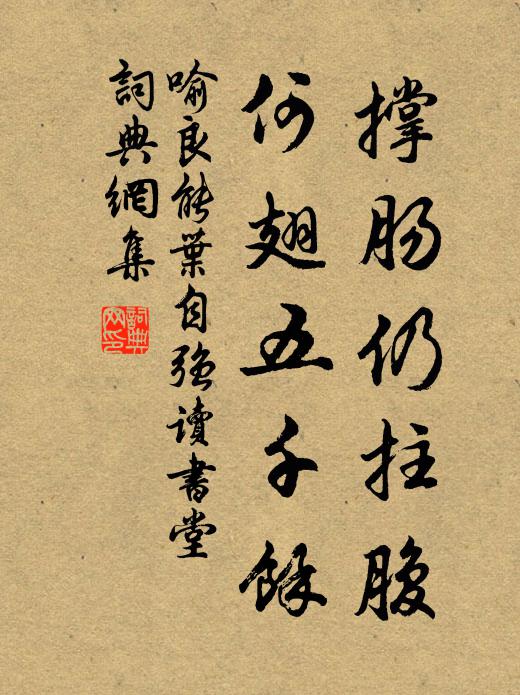 撐腸仍拄腹
何翅五千餘
喻良能葉自強讀書堂
詞典網集
詞典
网印